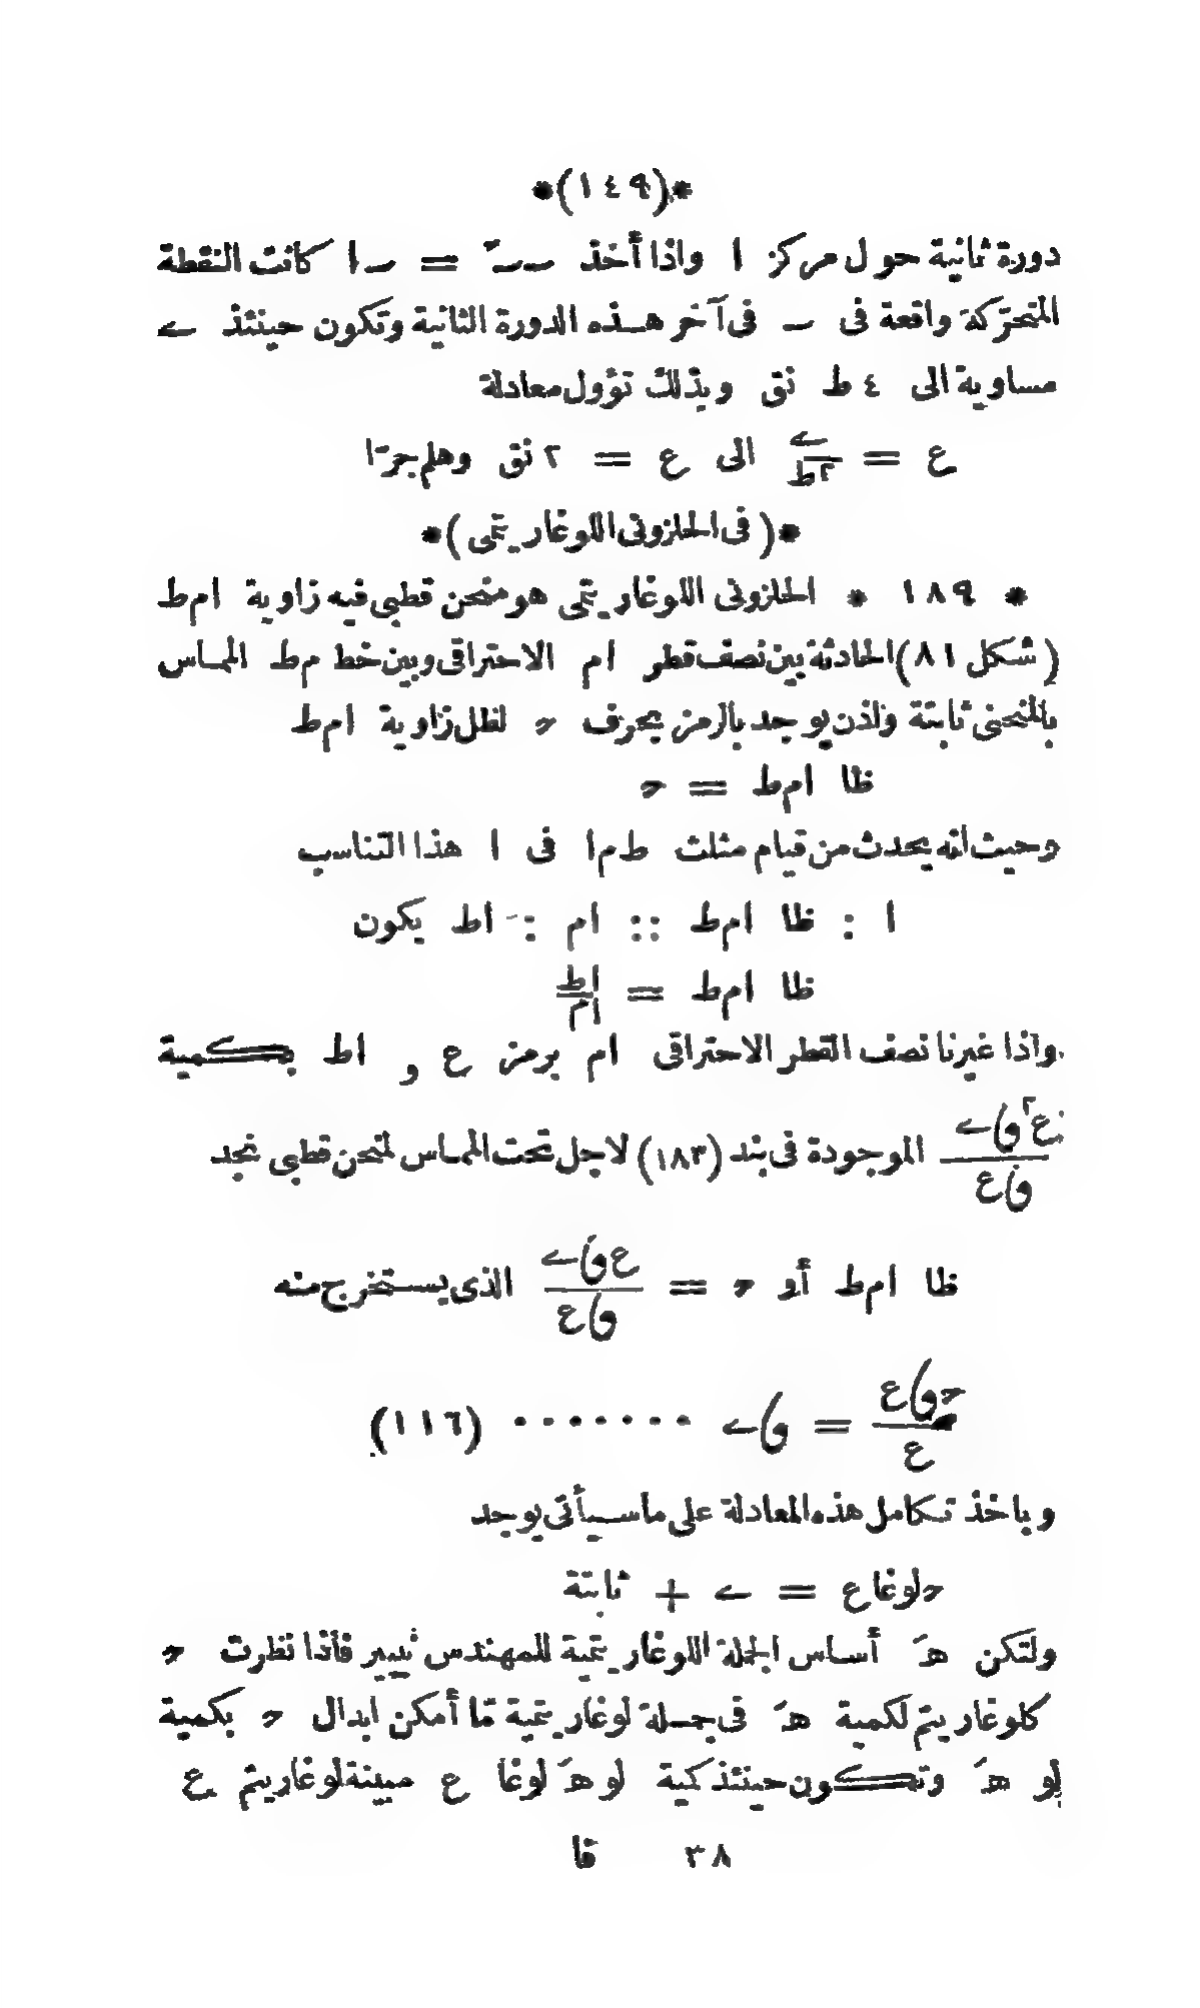 *(١٤٩)*
دورة ثانية حول مركز ا واذا أخذ ٮـٮَـ = ٮـا كانت النقطة
المتحرّكة واقعة فى ٮـ فى آخر هذه الدورة الثانية وتكون حينئذ ے
مساوية الى ٤ ط نق وبذلك تؤول معادلة
ع = ے/٢ط الى ع = ٢ نق وهلم جرّا
*(فى الحلزونى اللوغاريتمى)*
* ١٨٩ * الحلزونى اللوغاريتمى هو منحن قطبى فيه زاوية ا م ط
(شكل ٨١) الحادثة بين نصف قطر ا م الاحتراقى وبين خط م ط المماس
بالمنحنى ثابتة واذن يوجد بالرمز بحرف ح لظل زاوية ا م ط
ظا ا م ط = ح
وحيث انه يحدث من قيام مثلث ط م ا فى ا هذا التناسب
ا : ظا ا م ط :: ا م : ا ط يكون
ظا ا م ط = ا ط/ا م
واذا غيرنا نصف القطر الاحتراقى ا م برمز ع و ا ط بكمية
ع٢ ڡا ے/ڡا ع الموجودة فى بند (١٨٣) لاجل تحت المماس لمنحن قطبى نجد
ظا ا م ط أو ح = ع ڡا ے/ڡا ع الذى يستخرج منه
ح ڡا ع/ع = ڡا ے ....... (١١٦)
وباخذ تكامل هذه المعادلة على ماسيأتى يوجد
ح لوغا ع = ے + ثابتة
ولتكن هـَ أساس الجملة اللوغاريتمية للمهندس نيپير فاذا نظرت ح
كلوغاريتم لكمية هـَ فى جملة لوغاريتمية مّا أمكن ابدال ح بكمية
لو هـَ وتكون حينئذ كمية لو هـَ لوغا ع مبينة لوغاريتم ع
٣٨ قا